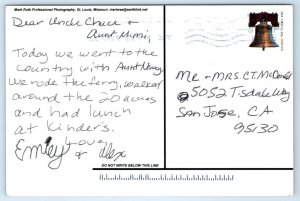 Mark Ruth Professional Photography, St. Louis, Missouri.
Dear Uncle Chuck +
Aunt Mimi,
Today we went to the
country with Aunt Nancy
We rode the ferry, walked
around the 20 acres
and had lunch
at Kinders.
Love,
Emily + Alex
Mr + MRS. C.T. McDonald
5052 Tisdale Way
SAN JOSE, CA
95130
DO NOT WRITE BELOW THIS LINE